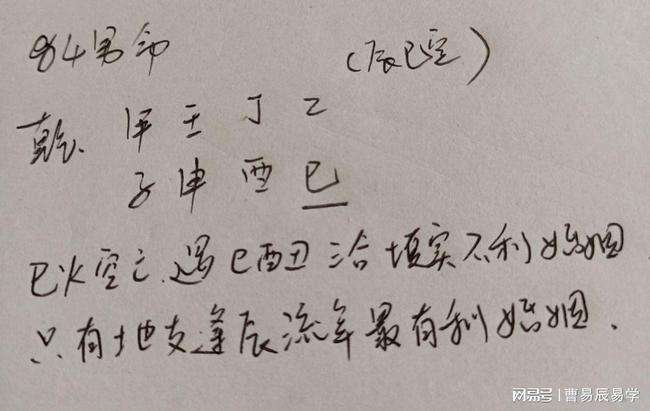 84男命 (辰巳空)
乾. 甲 壬 丁 乙
子 申 酉 巳
巳火空亡.遇巳酉丑三合填实不利婚姻
只有地支逢辰流年最有利婚姻.
网易号 | 曹易辰易学